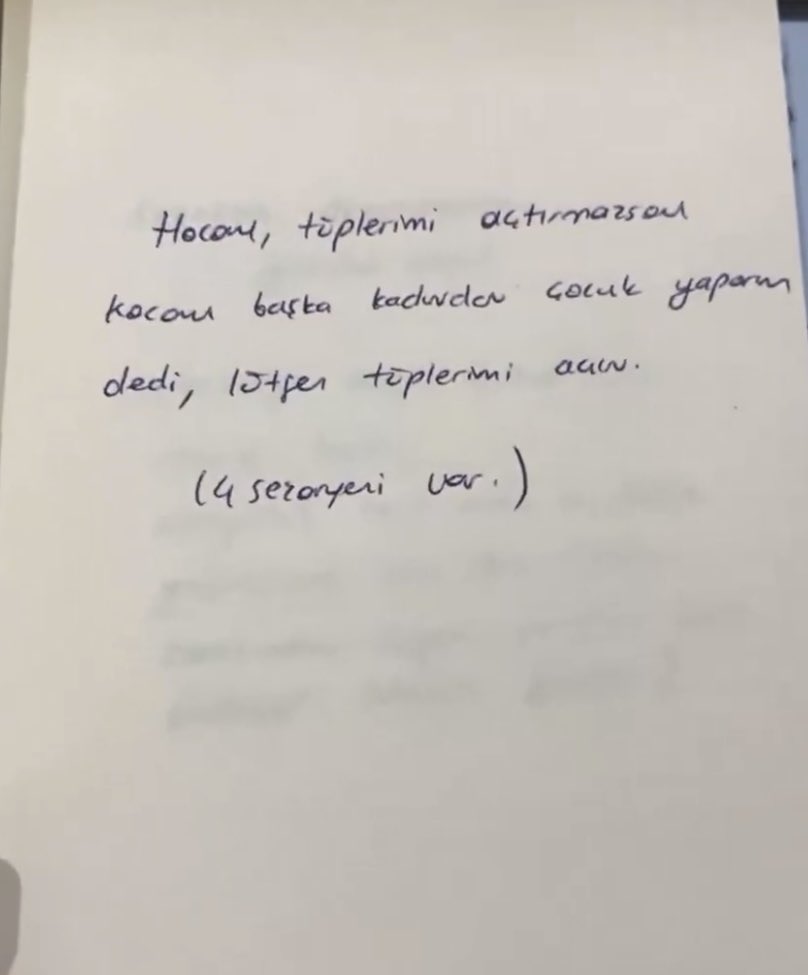 Hocam, tüplerimi açtırmazsam
kocam başka kadından çocuk yaparım
dedi, lütfen tüplerimi açın.
(4 sezaryeni var.)